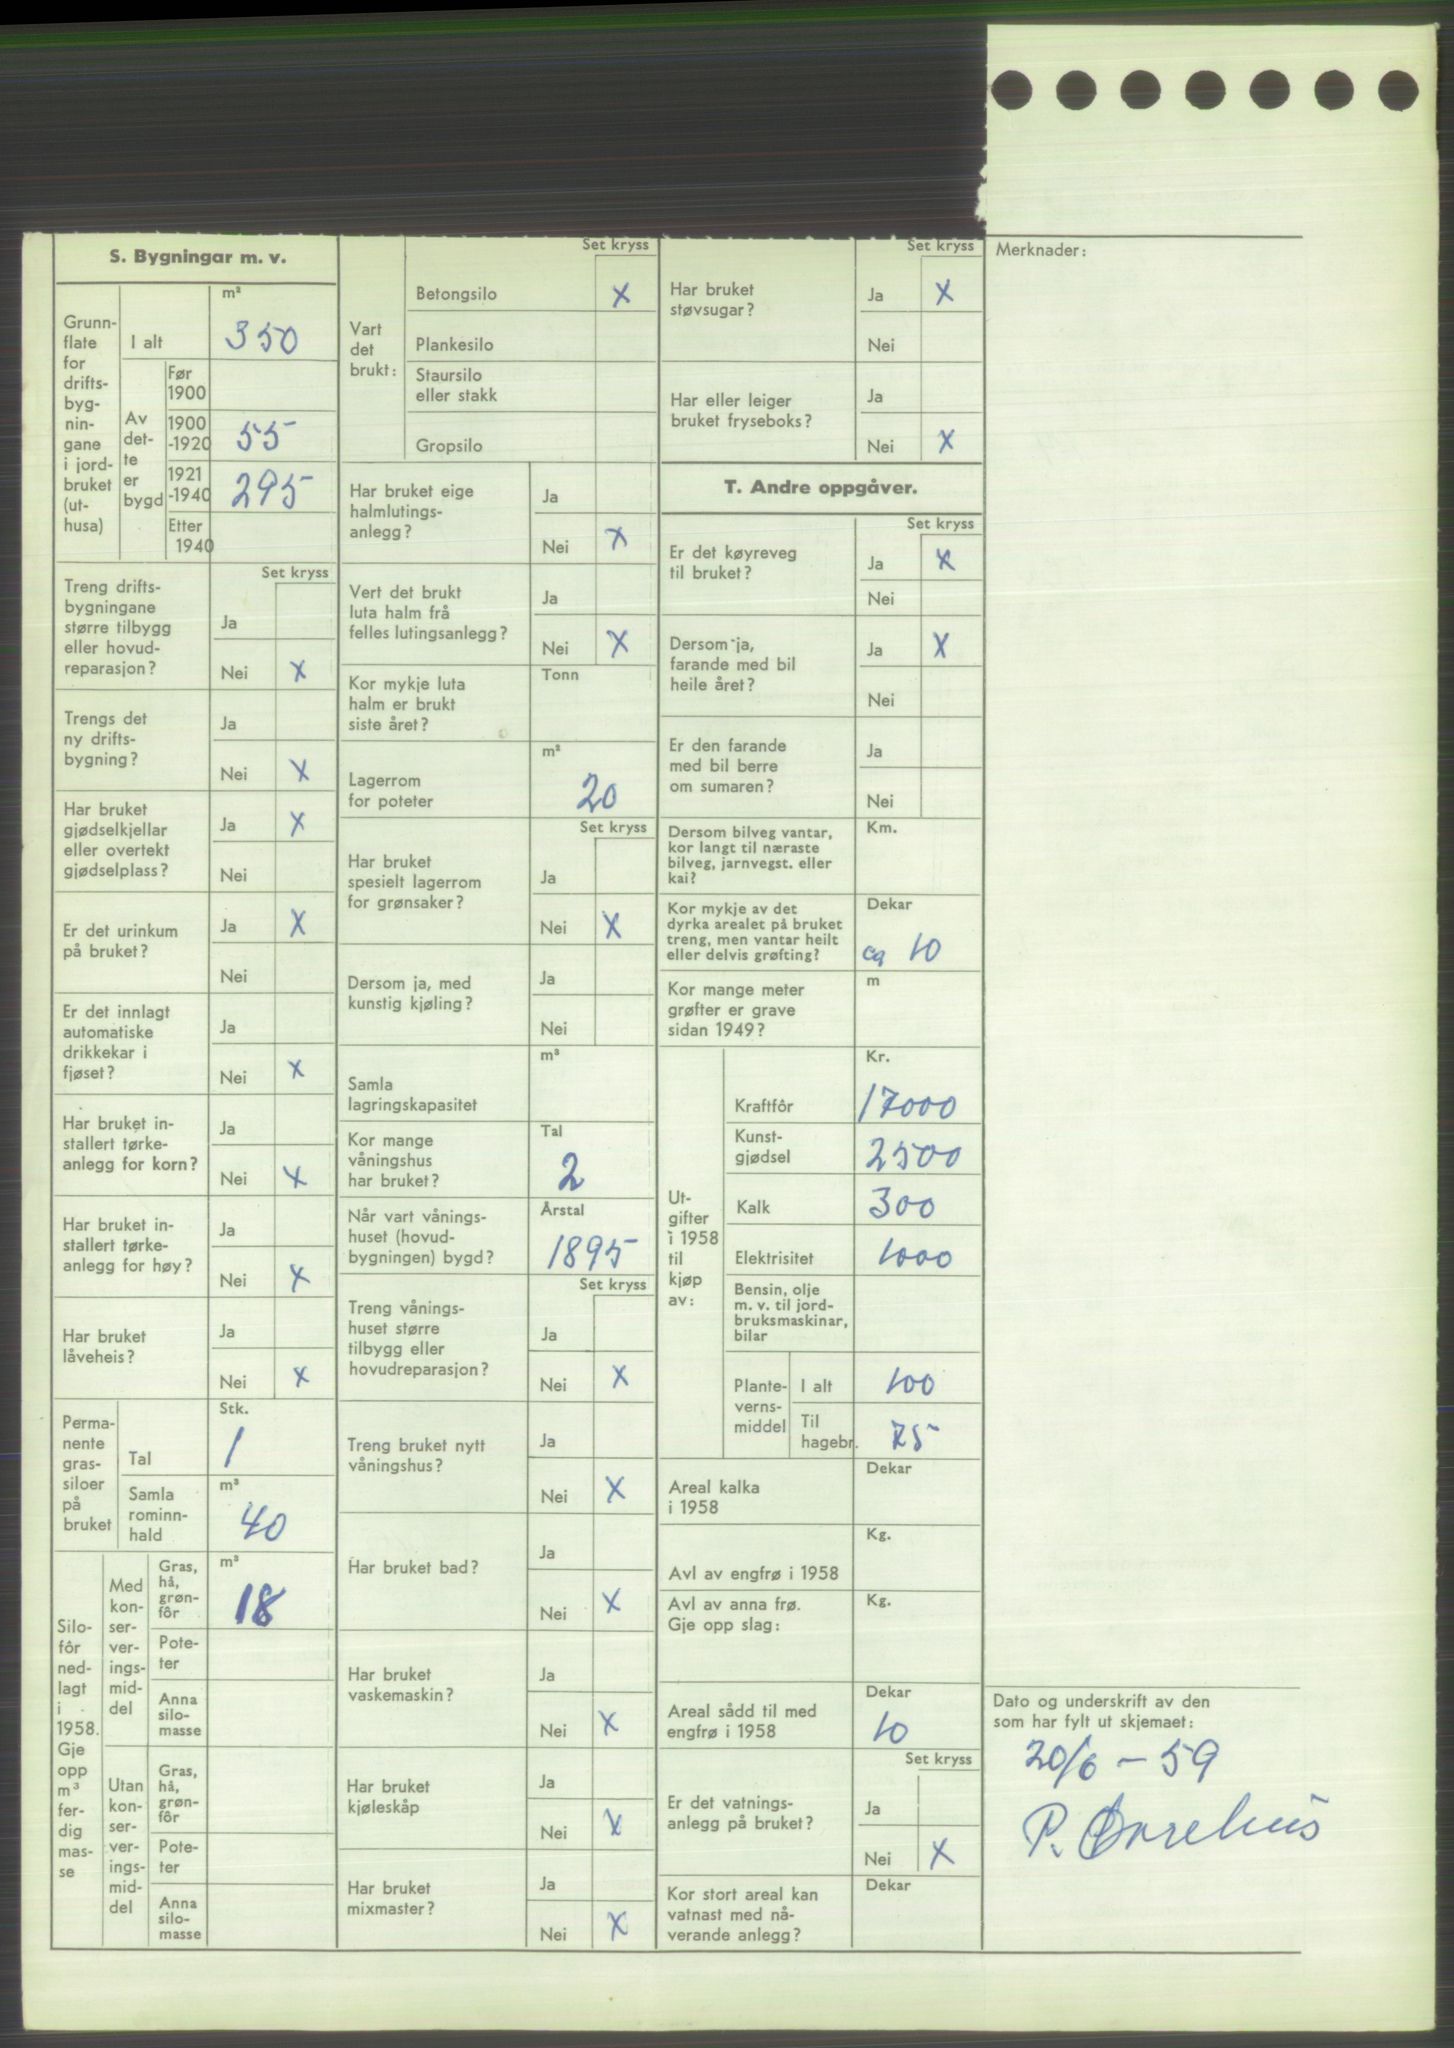 S. Bygningar m. v.
Grunn-
flate
for
drifts-
byg-
nin-
gane
i jord-
bruket
(ut-
husa)
m²
I alt
350
Av
det-
te
er
bygd
Før
1900
1900
-1920
55
1921
-1940
295
Etter
1940
Set kryss
Treng drifts-
bygningane
større tilbygg
eller hovud-
reparasjon?
Ja
Nei X
Trengs det
ny drifts-
bygning?
Ja
Nei X
Har bruket
gjødselkjellar
eller overtekt
gjødselplass?
Ja X
Nei
Er det urinkum
på bruket?
Ja X
Nei
Er det innlagt
automatiske
drikkekar i
fjøset?
Ja
Nei X
Har bruket in-
stallert tørke-
anlegg for korn?
Ja
Nei X
Har bruket in-
stallert tørke-
anlegg for høy?
Ja
Nei X
Har bruket
låveheis?
Ja
Nei X
Perma-
nente
gras-
siloer
på
bruket
Stk.
Tal
1
Samla
rominn-
hald
m³
40
Silo-
fôr
ned-
lagt
i
1958.
Gje
opp
m³
fer-
dig
mas-
se
Med
kon-
ser-
ver-
ings-
mid-
del
Gras,
hå,
grøn-
fôr
m³
18
Pote-
ter
Anna
silo-
masse
Utan
kon-
ser-
ver-
ings-
mid-
del
Gras,
hå,
grøn-
fôr
Pote-
ter
Anna
silo-
masse
Set kryss
Vart
det
brukt:
Betongsilo X
Plankesilo
Staursilo
eller stakk
Gropsilo
Har bruket eige
halmlutings-
anlegg?
Ja
Nei X
Vert det brukt
luta halm frå
felles lutingsanlegg?
Ja
Nei X
Kor mykje luta
halm er brukt
siste året?
Tonn
Lagerrom
for poteter
m²
20
Set kryss
Har bruket
spesielt lagerrom
for grønsaker?
Ja
Nei X
Dersom ja, med
kunstig kjøling?
Ja
Nei
Samla
lagringskapasitet
m³
Kor mange
våningshus
har bruket?
Tal
2
Når vart vånings-
huset (hovud-
bygningen) bygd?
Årstal
1895
Set kryss
Treng vånings-
huset større
tilbygg eller
hovudreparasjon?
Ja
Nei X
Treng bruket nytt
våningshus?
Ja
Nei X
Har bruket bad?
Ja
Nei X
Har bruket
vaskemaskin?
Ja
Nei X
Har bruket
kjøleskåp
Ja
Nei X
Har bruket
mixmaster?
Ja
Nei X
Set kryss
Har bruket
støvsugar?
Ja X
Nei
Har eller leiger
bruket fryseboks?
Ja
Nei X
T. Andre oppgåver.
Set kryss
Er det køyreveg
til bruket?
Ja X
Nei
Dersom ja,
farande med bil
heile året?
Ja X
Nei
Er den farande
med bil berre
om sumaren?
Ja
Nei
Dersom bilveg vantar,
kor langt til næraste
bilveg, jarnvegst. eller
kai?
Km.
Kor mykje av det
dyrka arealet på bruket
treng, men vantar heilt
eller delvis grøfting?
Dekar
ca 10
Kor mange meter
grøfter er grave
sidan 1949?
m
Ut-
gifter
i 1958
til
kjøp
av:
Kr.
Kraftfôr
17000
Kunst-
gjødsel
2500
Kalk
300
Elektrisitet
1000
Bensin, olje
m. v. til jord-
bruksmaskinar,
bilar
Plante-
verns-
middel
I alt
100
Til
hagebr.
75
Areal kalka
i 1958
Dekar
Avl av engfrø i 1958
Kg.
Avl av anna frø.
Gje opp slag:
Kg.
Areal sådd til med
engfrø i 1958
Dekar
10
Set kryss
Er det vatnings-
anlegg på bruket?
Ja
Nei X
Kor stort areal kan
vatnast med nå-
verande anlegg?
Dekar
Merknader:
Dato og underskrift av den
som har fylt ut skjemaet:
20/6 - 59
P.